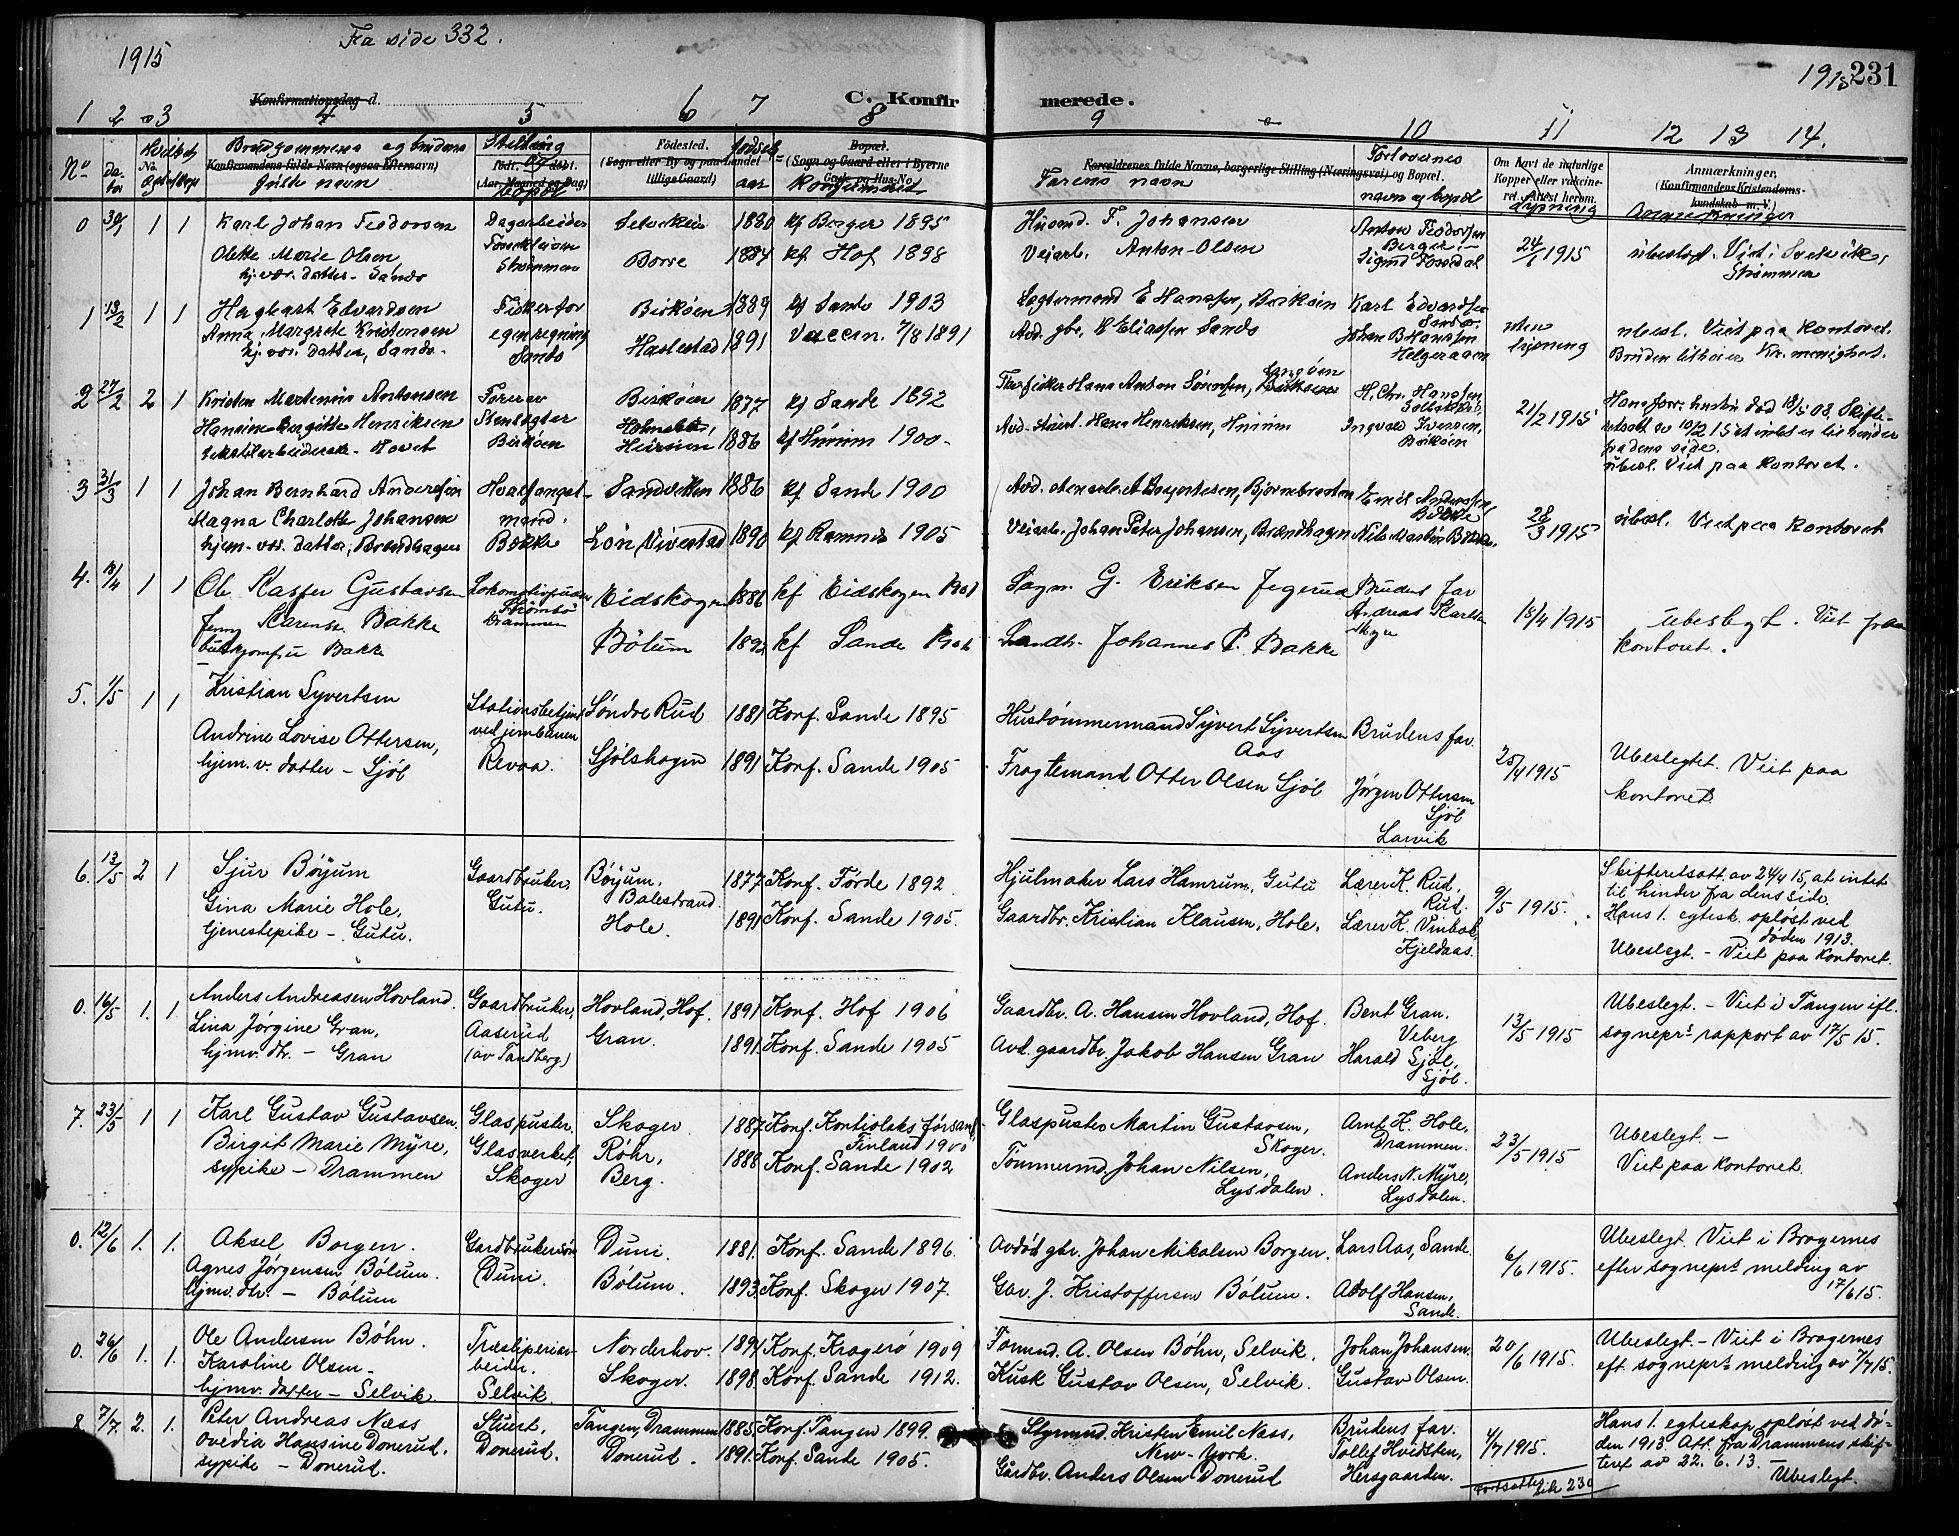 1915
Fra side 332.
1915 231
Konfirmationsdag d.
C. Konfirmerede.
1 2 3 4 5 6 7 8 9 10 11 12 13 14.
No
Brudgommens og brudens
fulde navn
Konfirmandens fulde Navn (ogsaa Efternavn)
Stilling
og
bopæl
Født. døbt.
(Aar, Maaned og Dag)
Fødested.
(Sogn eller By og paa Landet
tillige Gaard)
aar
Bopæl.
(Sogn og Gaard eller i Byerne
Gade og Hus-No.)
Forældrenes fulde Navne, borgerlige Stilling (Næringsvei) og Bopæl.
Farens navn
Forlovernes
navn og bopæl
Om havt de naturlige
Kopper eller vaccine-
ret. Attest herom.
Lysning
Anmærkninger,
(Konfirmandens Kristendoms-
kundskab m. V.)
Anmerkninger
0 30/1 1 1 Karl Johan Teodorsen Dagarbeider Selvik 1880 kf Berger 1895 Husmd. F. Johansen Anton Teodorsen
Berger
Olette Marie Olsen, Fossekleiven Borre 1884 kf Hof 1898 Veiarb. Anton Olsen Sigurd Fossedal 24/1 1915 ubeslegt. Viet i
hj.vær. datter - Sande Strømmen Strømmen
1 13/2 1 1 Hagbart Edvardsen Fisker for Birkøen 1889 kf Sande 1903 E Hanssen, Birkøen Karl Edvardsen
Sande
Anna Margrete Kristensen egen regning Haslestad 1891 Vaccin. 7/8 1891 Avd. gbr. Eliassen Sande Johan B Hanssen uten ubesl. Viet paa kontoret.
hj. vær. datter, Sande. Sande Helgeraaen lysning Bruden tilhører menighet.
2 27/2 2 1 Kristen Martenius Antonsen Birkøen 1877 kf Sande 1892 Hans Anton Sørensen, Langøen H. Chr. Hanssen, 21/2 1915 Hans forr. hustru død 18/5 08, Skifte-
Hansine Bergitte Henriksen Stensagter 1886 kf 1900 Avd. Hans Henriksen, Ingvald Iversen, retsatt av 10/2 15 at intet er til hinder
tekstilarbeiderske - Birkøen Birkøen fra dens side.
ubesl. Viet paa kontoret.
3 31/3 1 1 Johan Bernhard Anderssen Hvalfangst- Sandvikken 1886 kf Sande 1900 Avd. Bjørnebraaten Emil Anderssen,
Bakke
Magna Charlotte Johansen mand. Vivestad 1890 kf Ramnes 1905 Veiarb. Johan Peter Johansen, Brændhagen Nils Martin Bakke. 28/3 1915 ubesl. Viet paa kontoret
hjem. vær. datter, Brændhagen Bakke
4. 18/4 1 1 Ole Kasper Gustavsen Eidskogen 1886 kf Eidskogen 1901 Sagm. G. Eriksen Jegerud Brudens far
Jenny Karense Bakke Strømsø Bølum kf Sande Landh. Johannes P. Bakke Andreas 18/4 1915 ubeslegt. Viet paa
Bakke Drammen kontoret.
5. 1/5 1 1 Kristian Syvertsen Stationsbetjent Søndre Rud 1881 Konf. Sande 1895 Hustømmermand Syvert Syvertsen Brudens far.
Aas
Andrine Lovise Ottersen, ved jernbanen Sjølskogen 1891 Konf. Sande 1905 Fragtemand Otter Olsen Sjøl Jørgen Ottersen 25/4 1915 Ubeslegtet. Viet paa
hjem. v. datter - Sjøl Revaa. Sjøl kontoret.
Larvik
6. 13/5 2 1 Sjur Bøyum Gaardbruker, Bøyum, 1877 Konf. Førde 1892 Hjulmaker Lars Hamrum, Gutu Lærer K. Rud, 9/5 1915. Skifteretsatt av 24/4 15, at intet
Gina Marie Hole, Gutu. Balestrand Rud. til hinder fra dens side.
tjenestepike - Gutu. Hole. 1891 Konf. Sande 1905. Gaardbr. Kristian Klausen, Hole. Lærer H. Hans 1. egtesk. opløst ved
Kjeldaas. døden 1913.
Ubeslegt. - Viet paa kontoret.
0. 16/5 1. 1 Anders Andreasen Hovland. Gaardbruker, Hovland, Hof. 1891 Konf. Hof 1906 Gaardbr. A. Hansen Hovland, Hof. Bent Gran, 13/5 1915 Ubeslegt. - Viet i Tangen ifl.
Veberg
Lina Jørgine Gran, Aaserud Gran. 1891 Konf. Sande 1905 Avd. gaardbr. Jakob Hansen Gran Harald Sjøl, sognepr. rapport av 17/5 15.
hjmv. dtr. - Gran (av Tandberg) Sjøl.
7. 23/5 1 1 Karl Gustav Gustavsen, Glaspuster, Skoger. 1887 Konf. Kontiolaks førsaml. Glaspuster Martin Gustavsen, Arnt K. Hole, 23/5 1915 Ubeslegt. -
Finland 1900 Skoger. Drammen.
Birgit Marie Myre, Glasverket, Røhr, 1888 Konf. Sande 1902 Tømmermd. Johan Nilsen, Anders N. Myre, Viet paa kontoret.
sypike - Drammen Skoger Berg. Lysdalen. Lysdalen.
0. 12/6 1. 1. Aksel Borgen. Gardbrukersøn Duni. 1881. Konf. Sande 1896. Avdød gbr. Johan Mikalsen Borgen. Lars Aas, Sande. 6/6 1915. Ubeslegt. Viet i Bragernes
Agnes Jørgensen Bølum. Duni. Bølum. 1893 Konf. Skoger 1907. Gbr. J. Kristoffersen Bølum. Adolf Hansen, efter sognepr. melding av
hjmv. dtr. - Bølum Sande. 17/6 15.
0. 26/6 1. 1. Ole Andersen Bøhn. Træsliperiar- Norderhov. 1894 Konf. Kragerø 1909 Tømmd. A. Olsen Bøhn, Selvik. Johan Johansen. 20/6 1915. Ubeslegt. - Viet i Bragernes
Karoline Olsen - beider. Skoger. 1898 Konf. Sande 1912. Kusk Gustav Olsen, Selvik. Gustav Olsen. eft. sognepr. melding av 7/7 15.
hjmv. datter - Selvik. Selvik.
8. 7/7. 2. 1. Peter Andreas Næss Stuert, Tangen, Drammen 1885. Konf. Tangen 1899. Styrmnd. Kristen Emil Næss, Brudens far. 4/7 1915. Hans 1. egteskap opløst ved dø-
New-York.
Ovedia Hansine Donerud, Donerud. Donerud. 1891. Konf. Sande 1905. Gårdbr. Anders Olsen Donerud Tollef Hvidsten, den 1913. Att. fra Drammens skif-
sypike - Donerud. Hersgaarden. teret av 22. 6. 13. -
Ubeslegt.
Fortsættes side 230